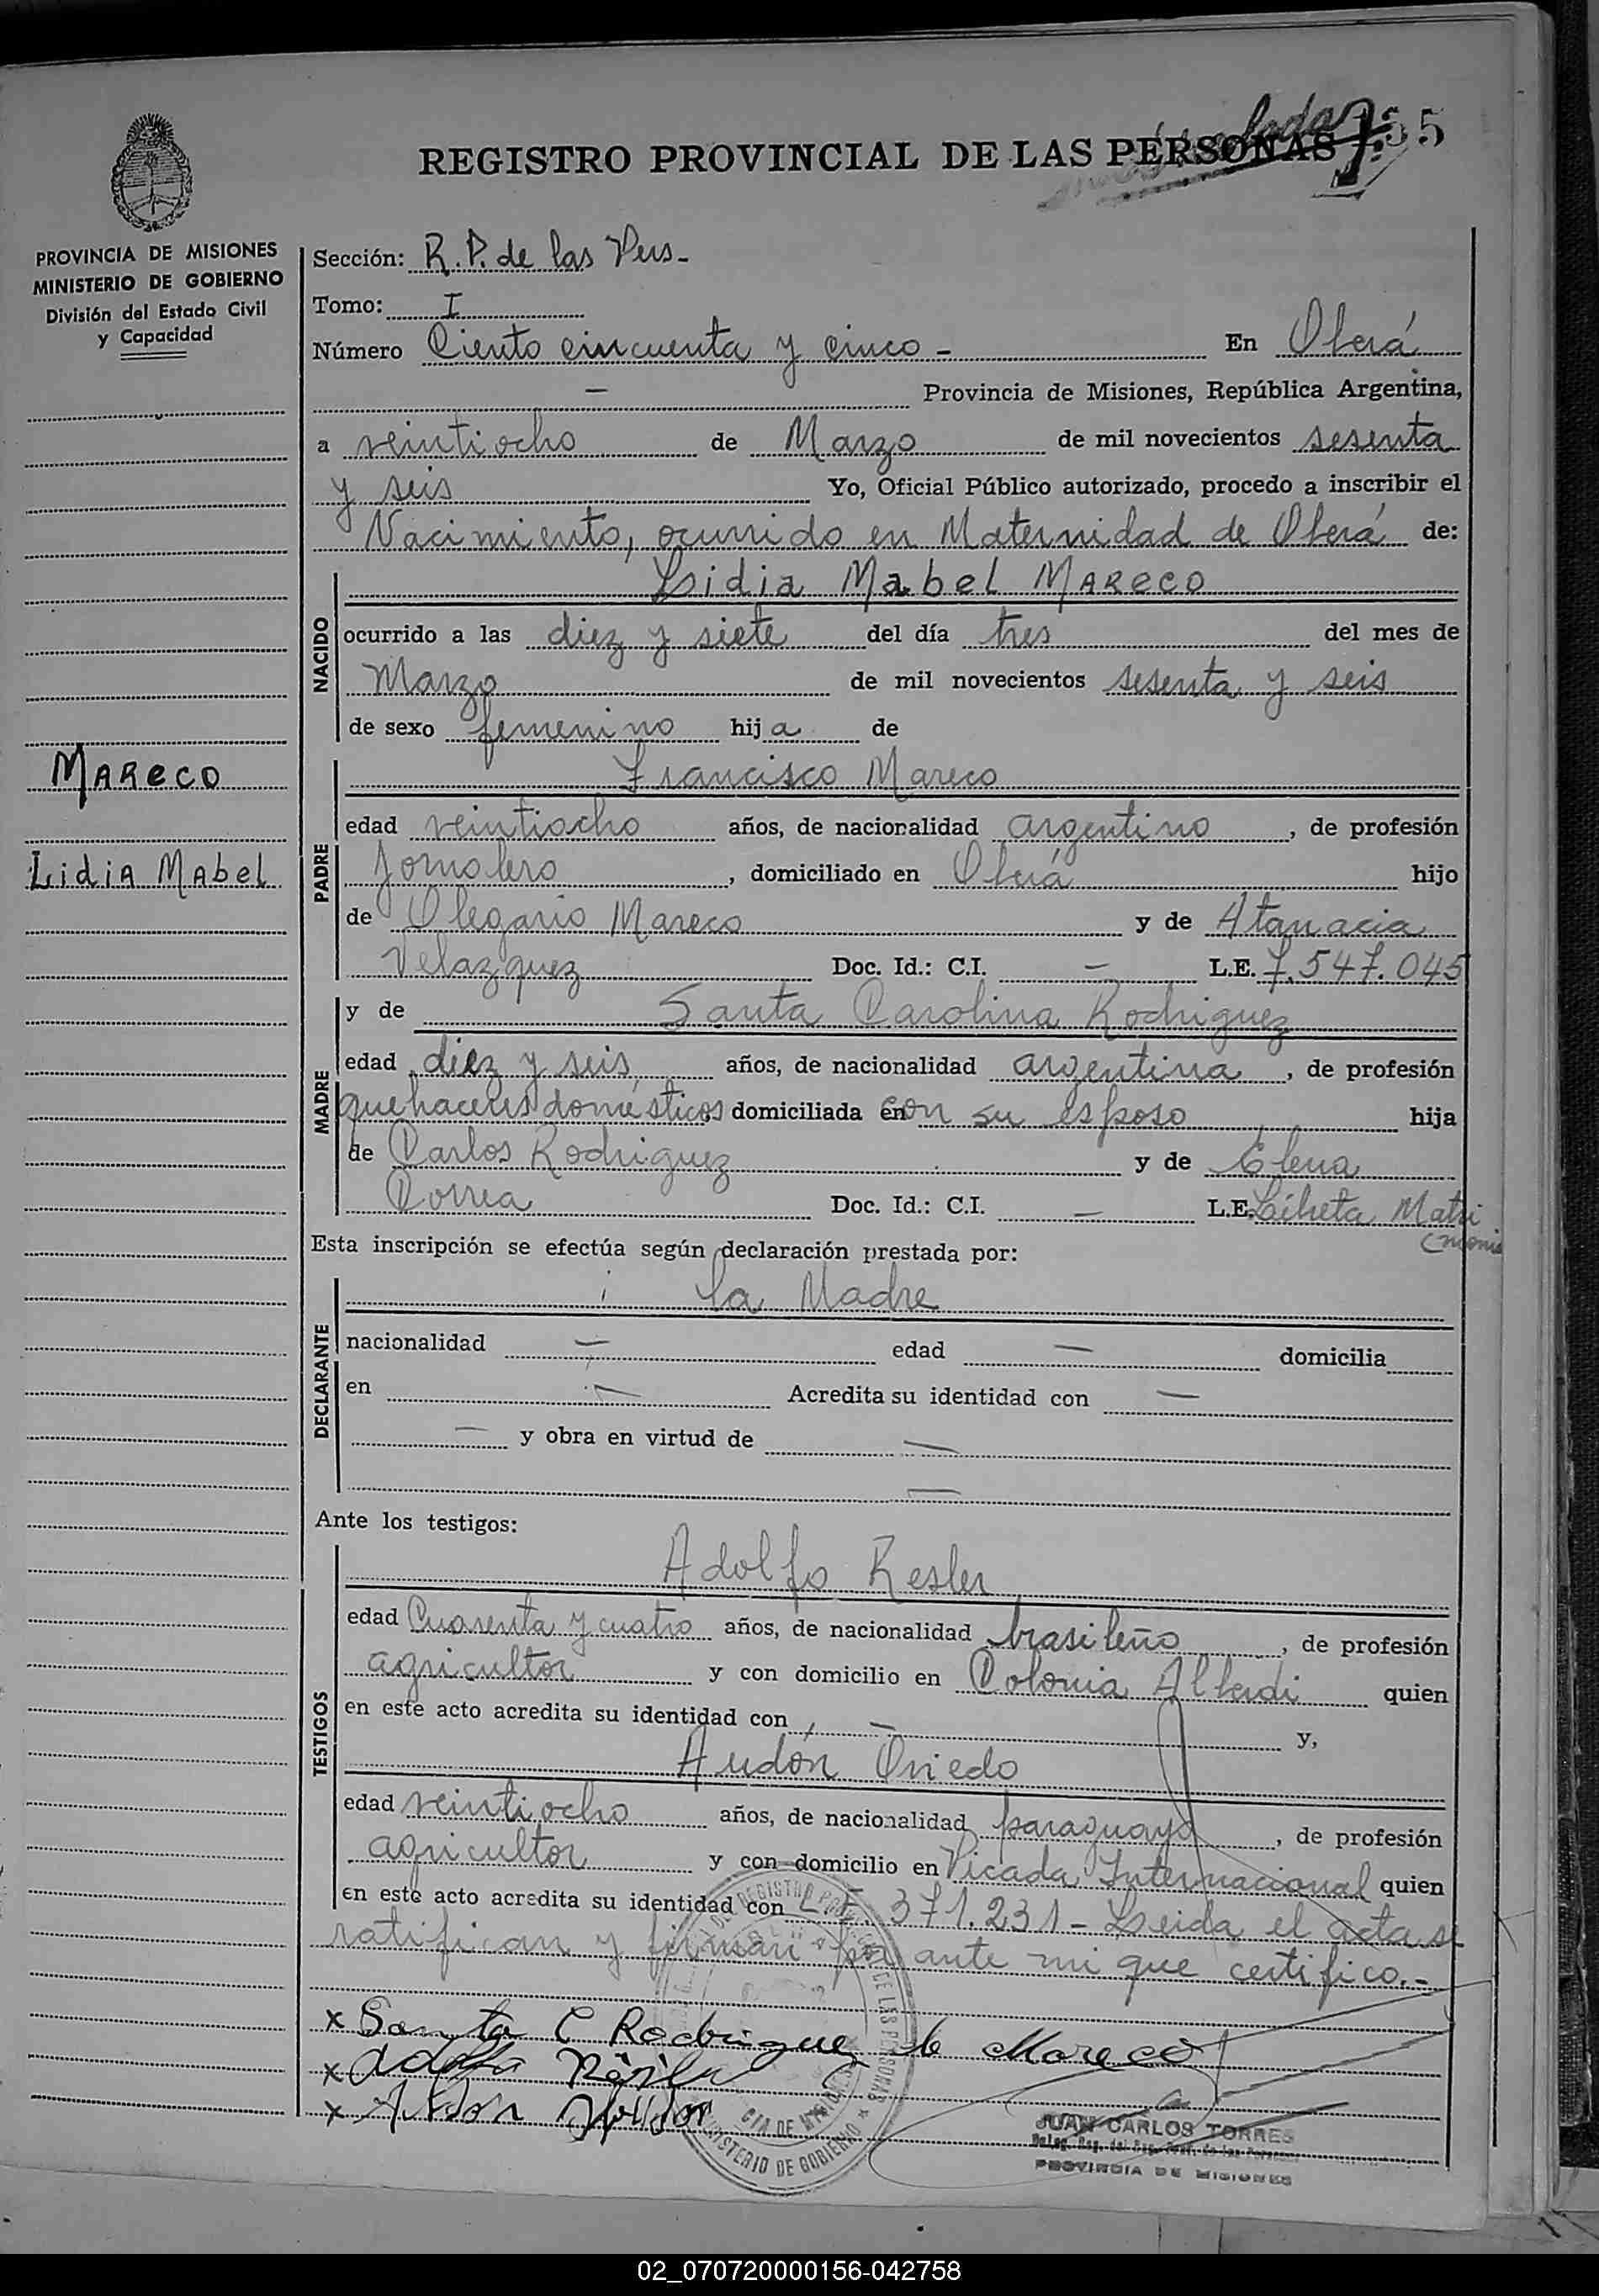 REGISTRO PROVINCIAL DE LAS PERSONAS 155
PROVINCIA DE MISIONES
MINISTERIO DE GOBIERNO
División del Estado Civil
y Capacidad
MARECO
Lidia Mabel
Sección: R. P. de las Pers-
Tomo: I
Número Ciento cincuenta y cinco - En Oberá
- Provincia de Misiones, República Argentina,
a veintiocho de Marzo de mil novecientos sesenta
y seis Yo, Oficial Público autorizado, procedo a inscribir el
Nacimiento, ocurrido en Maternidad de Oberá de:
NACIDO
Lidia Mabel MARECO
ocurrido a las diez y siete del día tres del mes de
Marzo de mil novecientos sesenta y seis
de sexo femenino hija de
PADRE
Francisco Mareco
edad veintiocho años, de nacionalidad argentino, de profesión
Jornalero, domiciliado en Oberá hijo
de Olegario Mareco y de Atanacia
Velazquez Doc. Id.: C.I. - L.E. 7.547.045
MADRE
y de Santa Carolina Rodriguez
edad diez y seis años, de nacionalidad argentina, de profesión
quehaceres domésticos domiciliada en con su esposo hija
de Carlos Rodriguez y de Elena
Correa Doc. Id.: C.I. - L.E. Libreta Matri
monio
Esta inscripción se efectúa según declaración prestada por:
DECLARANTE
la Madre
nacionalidad - edad - domicilia
en - Acredita su identidad con -
- y obra en virtud de -
-
Ante los testigos:
TESTIGOS
Adolfo Resler
edad Cuarenta y cuatro años, de nacionalidad brasileño, de profesión
agricultor y con domicilio en Colonia Alberdi quien
en este acto acredita su identidad con - y,
Audón Oviedo
edad veintiocho años, de nacionalidad paraguayo, de profesión
agricultor y con domicilio en Picada Internacional quien
en este acto acredita su identidad con 371.231 - Leida el acta se
ratifican y firman por ante mi que certifico.-
x Santa C Rodriguez de Mareco
x Adolfo
x Audon
JUAN CARLOS TORRES
PROVINCIA DE MISIONES
MINISTERIO DE GOBIERNO
02_070720000156-042758